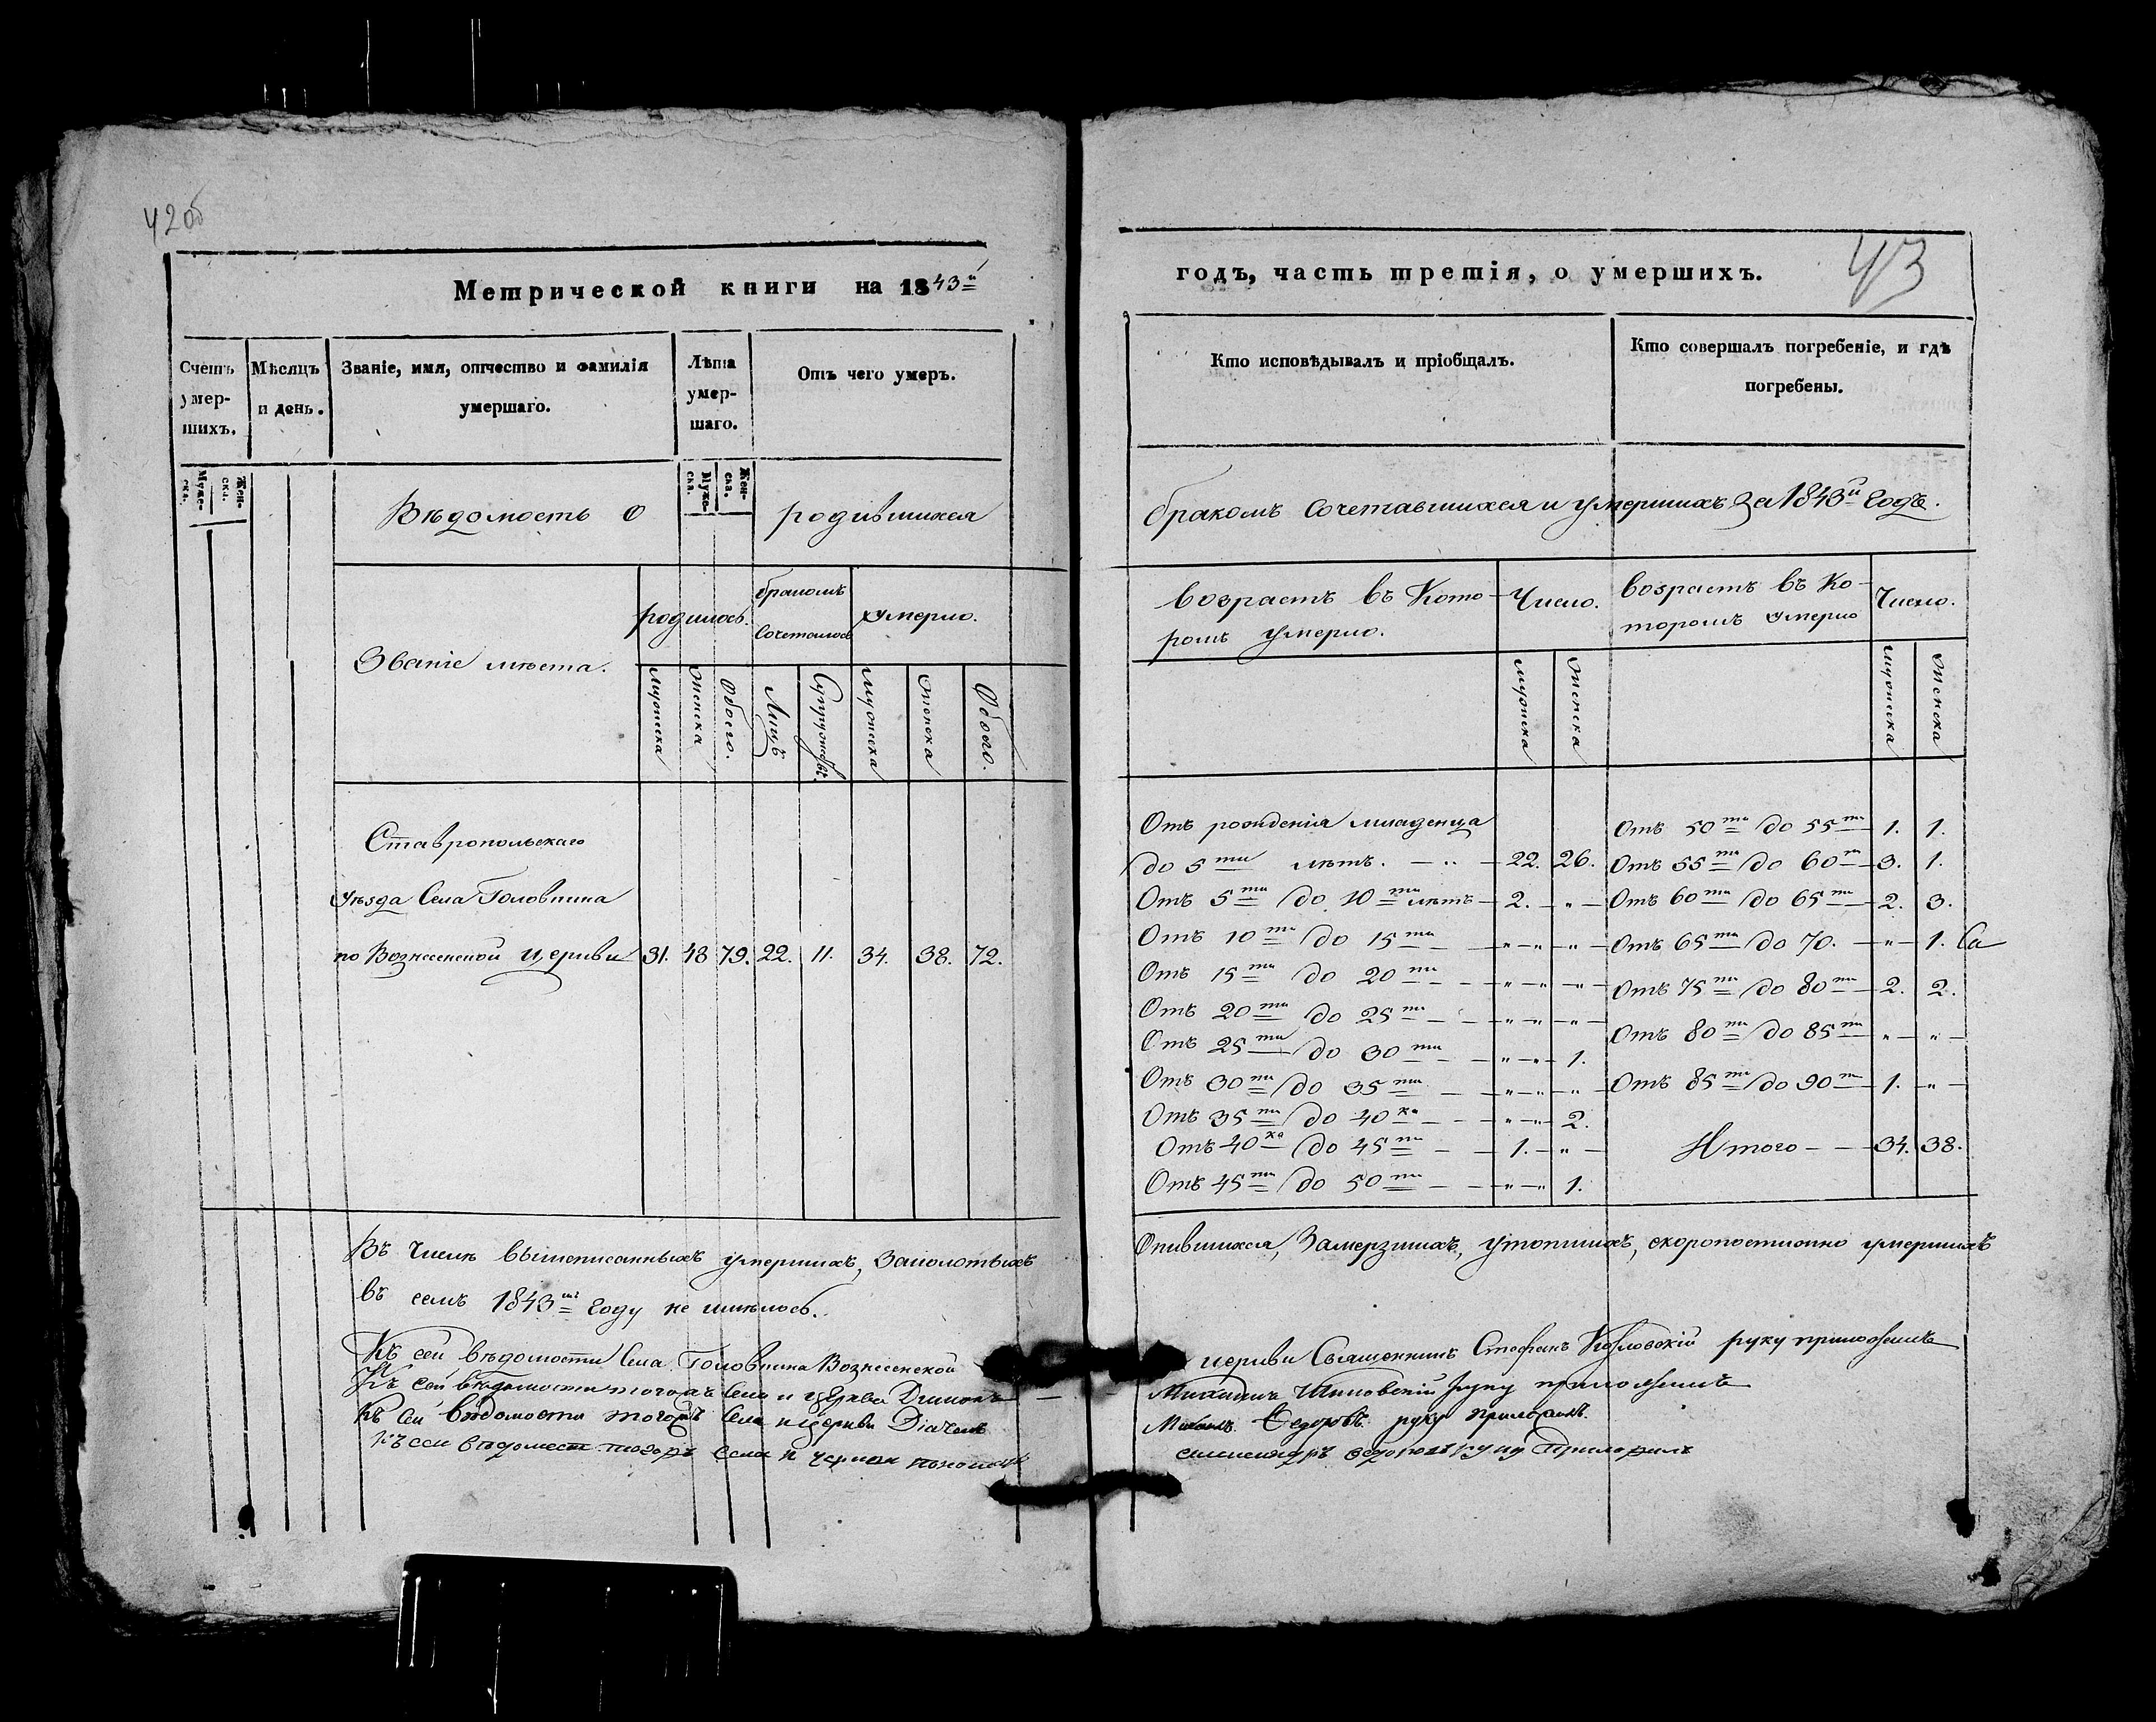 42об
Метрической книги на 1843й
Счетъ умершихъ.
Мѣсяцъ и день.
Званіе, имя, отчество и фамилія умершаго.
Лѣта умершаго.
Отъ чего умеръ.
Мужеска. Женска.
Мужеска. Женска.
Вѣдомость о родившихся
Званіе мѣста.
родилось.
бракомъ сочеталось
умерло.
Мужеска Женска Обоего. Лицъ Супружествъ. Мужеска Женска Обоего.
Ставропольскаго
уѣзда Села Головкина
по Вознесенской церкви 31. 48 79. 22. 11. 34. 38. 72.
Въ числѣ вышеписанныхъ умершихъ,
въ семъ 1843мъ году не имѣлось.
Къ сей вѣдомости Села Головкина Вознесенской
Къ сей вѣдомости тогожъ Села и церкви Диаконъ
Къ сей вѣдомости тогожъ Села и церкви Діачекъ
Къ сей вѣдомости тогожъ села и церкви пономарь
годъ, часть третія, о умершихъ.
43
Кто исповѣдывалъ и пріобщалъ.
Кто совершалъ погребеніе, и гдѣ погребены.
бракомъ сочетавшихся и умершихъ за 1843й годъ.
возрастъ въ которомъ умерло.
Число.
возрастъ въ котором умерло
Число.
Мужеска Женска
Мужеска Женска
Отъ рожденія младенца
до 5ти лѣтъ. — „ — 22. 26.
Отъ 5ти до 10ти лѣтъ — 2. — „ —
Отъ 10ти до 15ти — „ — „ — „ —
Отъ 15ти до 20ти — „ — „ — „ —
Отъ 20ти до 25ти — „ — „ — „ —
Отъ 25ти до 30ти — „ — „ — 1.
Отъ 30ти до 35ти — „ — „ — „ —
Отъ 35ти до 40ка — „ — „ — 2.
Отъ 40ка до 45ти — 1. — „ —
Отъ 45ти до 50ти — „ — „ 1.
Отъ 50ти до 55ти — 1. 1.
Отъ 55ти до 60ти — 3. 1.
Отъ 60ти до 65ти — 2. 3.
Отъ 65ти до 70. — „ — 1.
Отъ 75ти до 80ти — 2. 2.
Отъ 80ти до 85ти — „ — „ —
Отъ 85ти до 90ти — 1. „ —
Итого — — 34. 38.
Опившихся, Замерзшихъ, утопшихъ, скоропостижно умершихъ
церкви Священникъ Стефанъ Козловскій руку приложилъ
Михаилъ руку приложилъ
Федоровъ руку приложилъ.
руку приложилъ